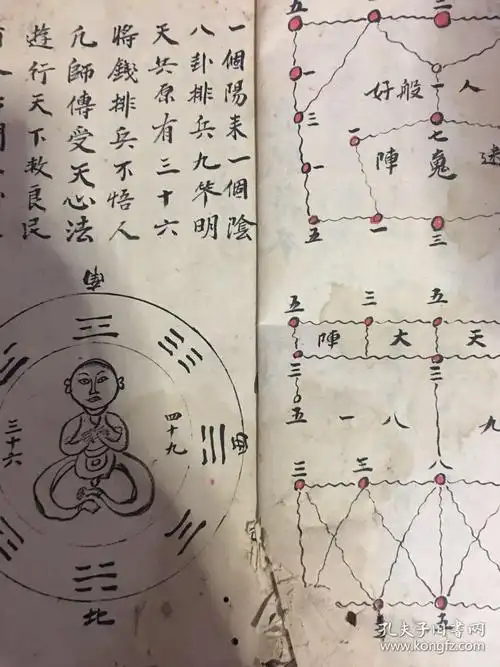 五 一 二
一
三
好般一人
一 七
陣 鬼 迷
一
五 一 三
五 三 五
陣 大 天
三 三
五 一 八 九
三 三 八
五
一個陽來一個陰
八卦排兵九 明
天共原有三十六
將錢排兵不悟人
凡師傳受天心法
遊行天下救良民
南
四十九
三十六
北
孔夫子旧书网
kongfz.com